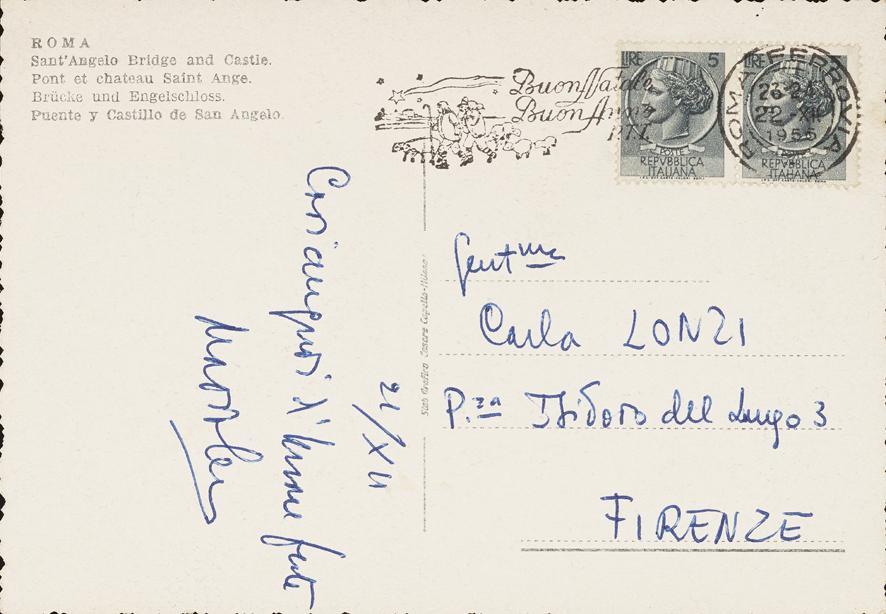 ROMA
Sant'Angelo Bridge and Castle.
Pont et chateau Saint Ange.
Brücke und Engelschloss.
Puente y Castillo de San Angelo.
Buon Natale
Buon Anno
P.T.T.
LIRE 5
POSTE
REPVBBLICA
ITALIANA
LIRE
POSTE
REPVBBLICA
ITALIANA
ROMA FERROVIA
22 -XII
1955
21/XII
Cari auguri d'buone feste
Stab. Grafico Cesare Capello - Milano
Gent.ma
Carla LONZI
P.za Isidoro del Lungo 3
FIRENZE